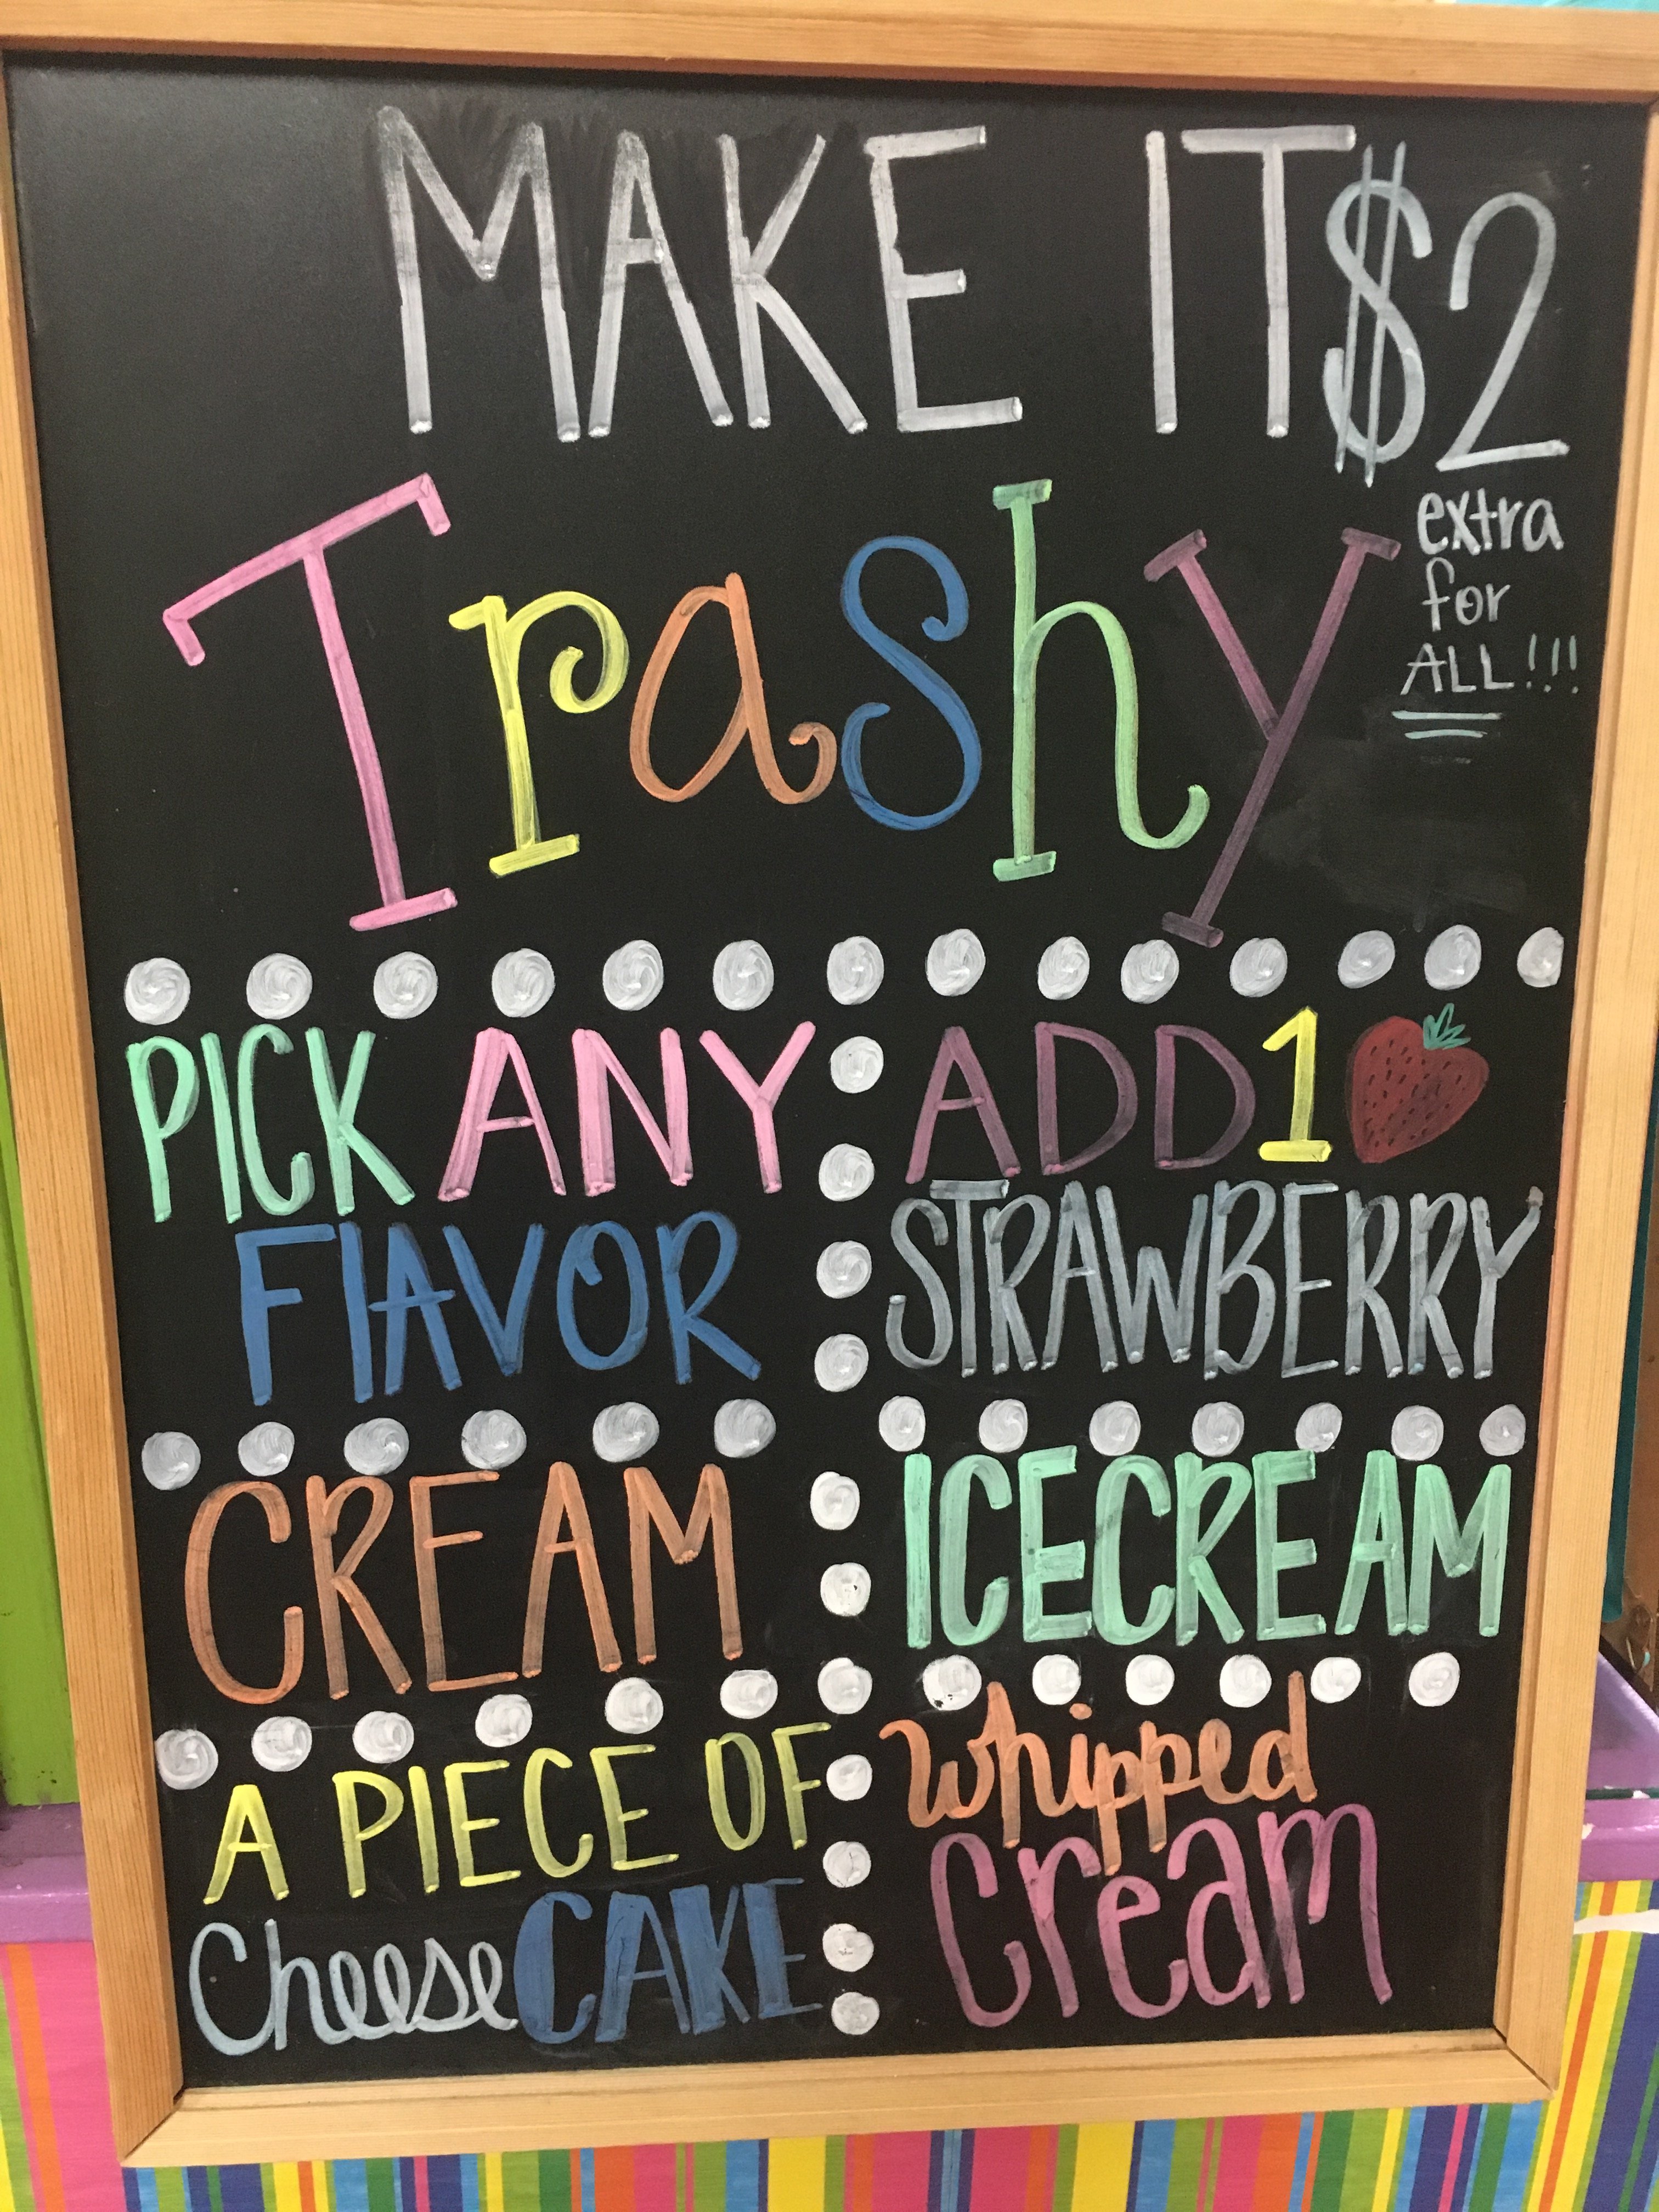 MAKE IT $2
extra
for
ALL!!!
Trashy
PICK ANY
FlAVOR
ADD 1
STRAWBERRY
CREAM
ICECREAM
A PIECE OF
CheeseCAKE
whipped
Cream